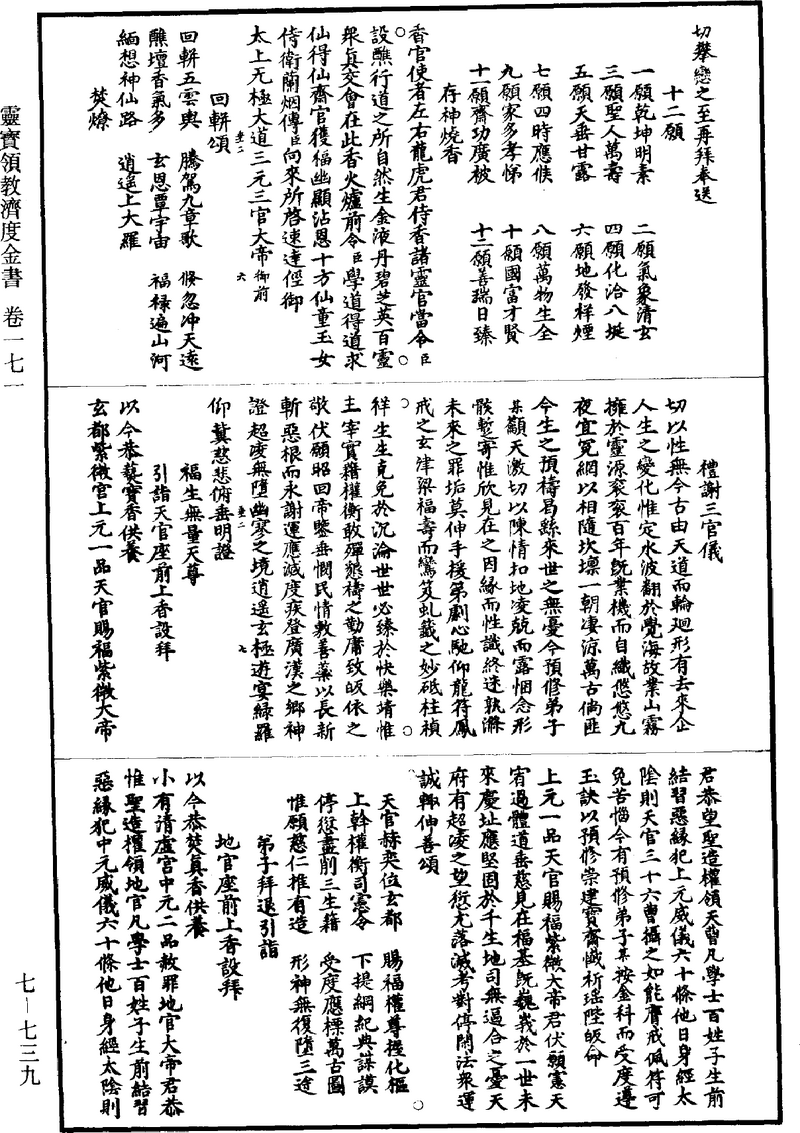 切攀戀之至再拜奉送
十二願
一願乾坤明素　二願氣象清玄
三願聖人萬壽　四願化洽八埏
五願天垂甘露　六願地發祥煙
七願四時應候　八願萬物生全
九願家多孝悌　十願國富才賢
十一願齋功廣被　十二願善瑞日臻
存神燒香
香官使者左右龍虎君侍香諸靈官當令臣
設醮行道之所自然生金液丹碧芝英百靈
衆真交會在此香火爐前令臣學道得道求
仙得仙齋官獲福幽顯沾恩十方仙童玉女
侍衛蘭烟傳臣向來所啓速達徑御
太上无極大道三元三官大帝御前
六
回輧頌
回輧五雲輿　騰駕九章歌　倏忽冲天遠
醮壇香氣多　玄恩覃宇宙　福祿遍山河
緬想神仙路　逍遥上大羅
焚燎
禮謝三官儀
切以性無今古由天道而輪廻形有去來企
人生之變化惟定水波翻於覺海故業山霧
擁於靈源衮衮百年旣業機而自纖悠悠九
夜宜冤網以相隨坎壈一朝凄涼萬古倘匪
今生之預禱曷繇來世之無憂今預修弟子
某顓天激切以陳情扣地凌兢而露悃念形
骸暫寄惟欣見在之因緣而性識終迷孰滌
未來之罪垢莫伸手援第劇心馳仰龍符鳳
戒之玄津梁福壽而鸞笈虬籤之妙砥柱禎
祥生生克免於沉淪世世必臻於快樂堉惟
主宰實籍權衡敢殫懇禱之勤庸致皈依之
敬伏願昭回帝鑒垂憫民情敷善藥以長新
斬惡根而永謝運應滅度疾登廣漠之鄉神
證超凌無墮幽寥之境逍遥玄極遊宴綠羅
七
仰冀慈悲俯垂明證
福生無量天尊
引詣天官座前上香設拜
以今恭爇寶香供養
玄都紫微宫上元一品天官賜福紫微大帝
君恭望聖造權領天曹凡學士百姓子生前
結習惡緣犯上元威儀六十條他日身經太
陰則天官三十六曹攝之如能膺戒佩符可
免苦惱今有預修弟子某按金科而受度遵
玉訣以預修崇建寶齋懺祈瑶陛皈命
上元一品天官賜福紫微大帝君伏願憲天
宥過體道垂慈見在福基旣巍峩於一世未
來慶址應堅固於千生地司無逼合之憂天
府有超凌之望愆尤落滅考對停閑法衆運
誠輒伸善頌
天官赫奕位玄都　賜福權尊握化樞
上幹權衡司憲令　下提綱紀典謀謨
停愆盡削三生籍　受度應標萬古圖
惟願慈仁推有造　形神無復墮三途
弟子拜退引詣
地官座前上香設拜
以今恭焚真香供養
小有清虚宫中元二品赦罪地官大帝君恭
惟聖造權領地官凡學士百姓子生前結習
惡緣犯中元威儀六十條他日身經太陰則
靈寶領教濟度金書　卷一七一
七—七三九